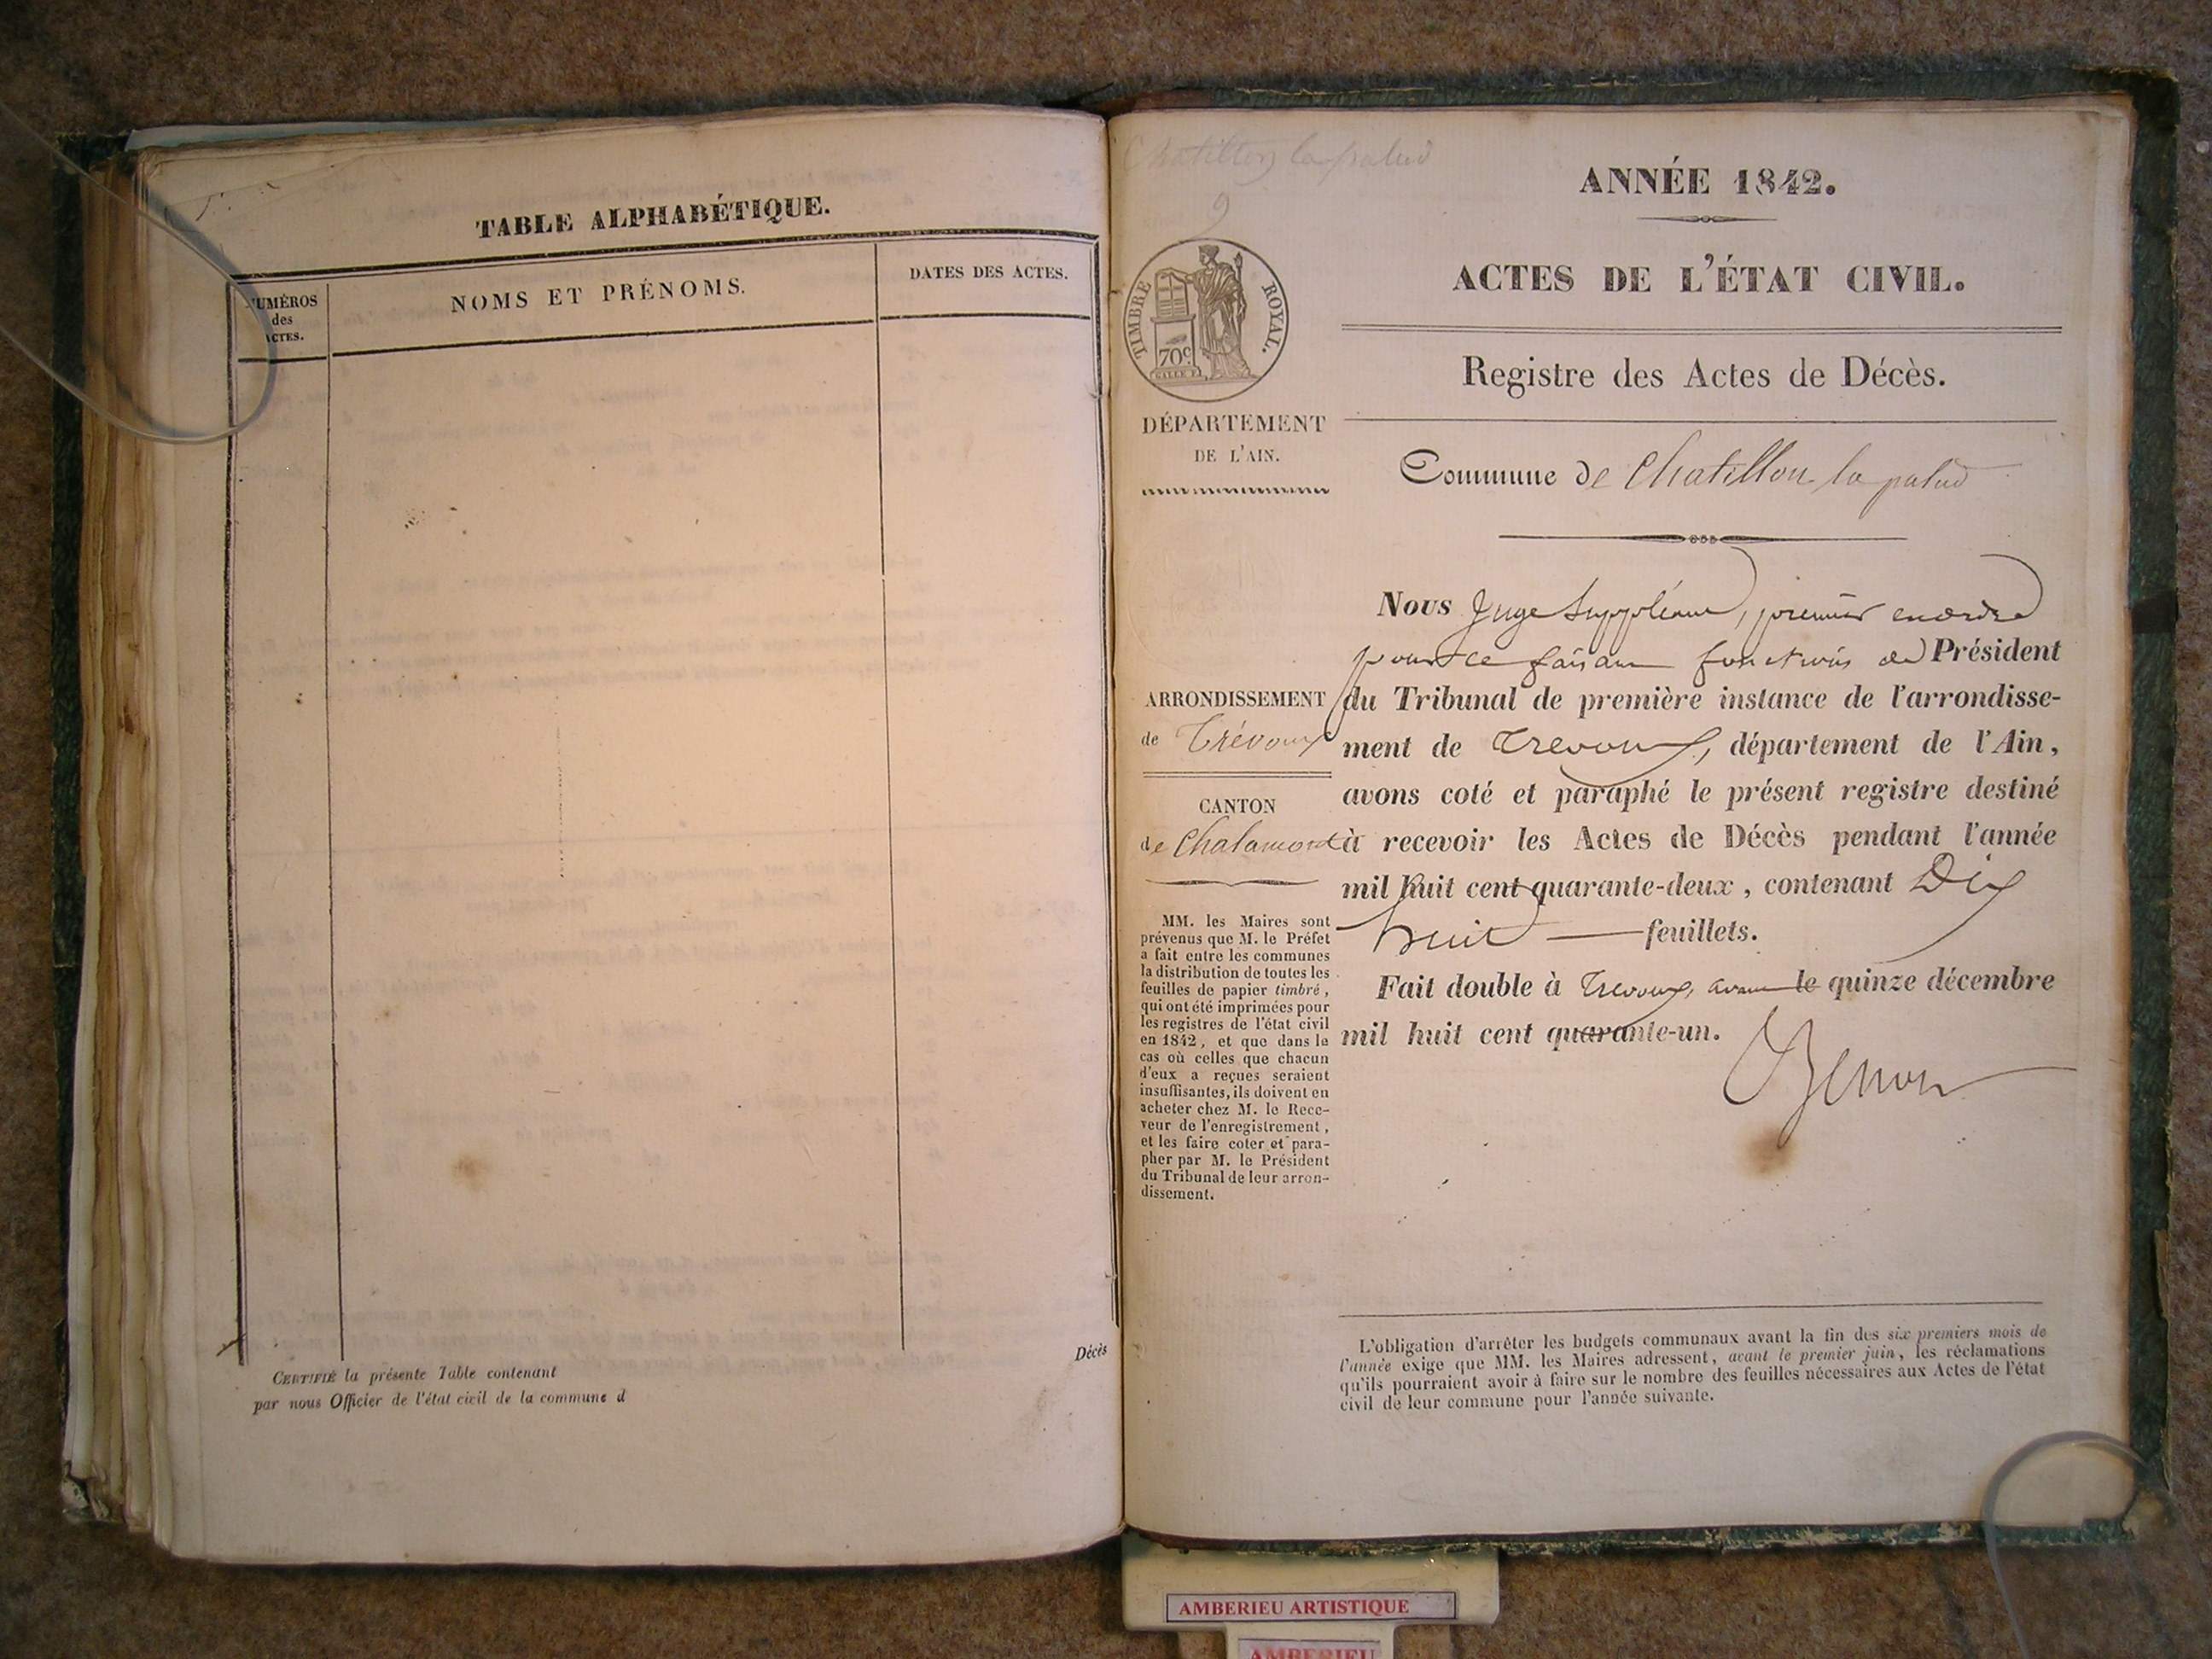 TABLE ALPHABÉTIQUE.
NUMÉROS
des
ACTES.
NOMS ET PRÉNOMS.
DATES DES ACTES.
CERTIFIÉ la présente Table contenant
par nous Officier de l'état civil de la commune d
Décès
Chatillon la palud
9
TIMBRE ROYAL.
70c
ANNÉE 1842.
ACTES DE L'ÉTAT CIVIL.
Registre des Actes de Décès.
DÉPARTEMENT
DE L'AIN.
Commune de Chatillon la palud
ARRONDISSEMENT
de Trévoux
CANTON
de Chalamont
MM. les Maires sont
prévenus que M. le Préfet
a fait entre les communes
la distribution de toutes les
feuilles de papier timbré,
qui ont été imprimées pour
les registres de l'état civil
en 1842, et que dans le
cas où celles que chacun
d'eux a reçues seraient
insuffisantes, ils doivent en
acheter chez M. le Rece-
veur de l'enregistrement,
et les faire coter et para-
pher par M. le Président
du Tribunal de leur arron-
dissement.
Nous Juge Suppléant, premier en ordre
pour ce faisant fonctions de Président
du Tribunal de première instance de l'arrondisse-
ment de Trevoux, département de l'Ain,
avons coté et paraphé le présent registre destiné
à recevoir les Actes de Décès pendant l'année
mil huit cent quarante-deux, contenant Dix
huit feuillets.
Fait double à Trevoux, avant le quinze décembre
mil huit cent quarante-un.
L'obligation d'arrêter les budgets communaux avant la fin des six premiers mois de
l'année exige que MM. les Maires adressent, avant le premier juin, les réclamations
qu'ils pourraient avoir à faire sur le nombre des feuilles nécessaires aux Actes de l'état
civil de leur commune pour l'année suivante.
AMBERIEU ARTISTIQUE
AMBERIEU